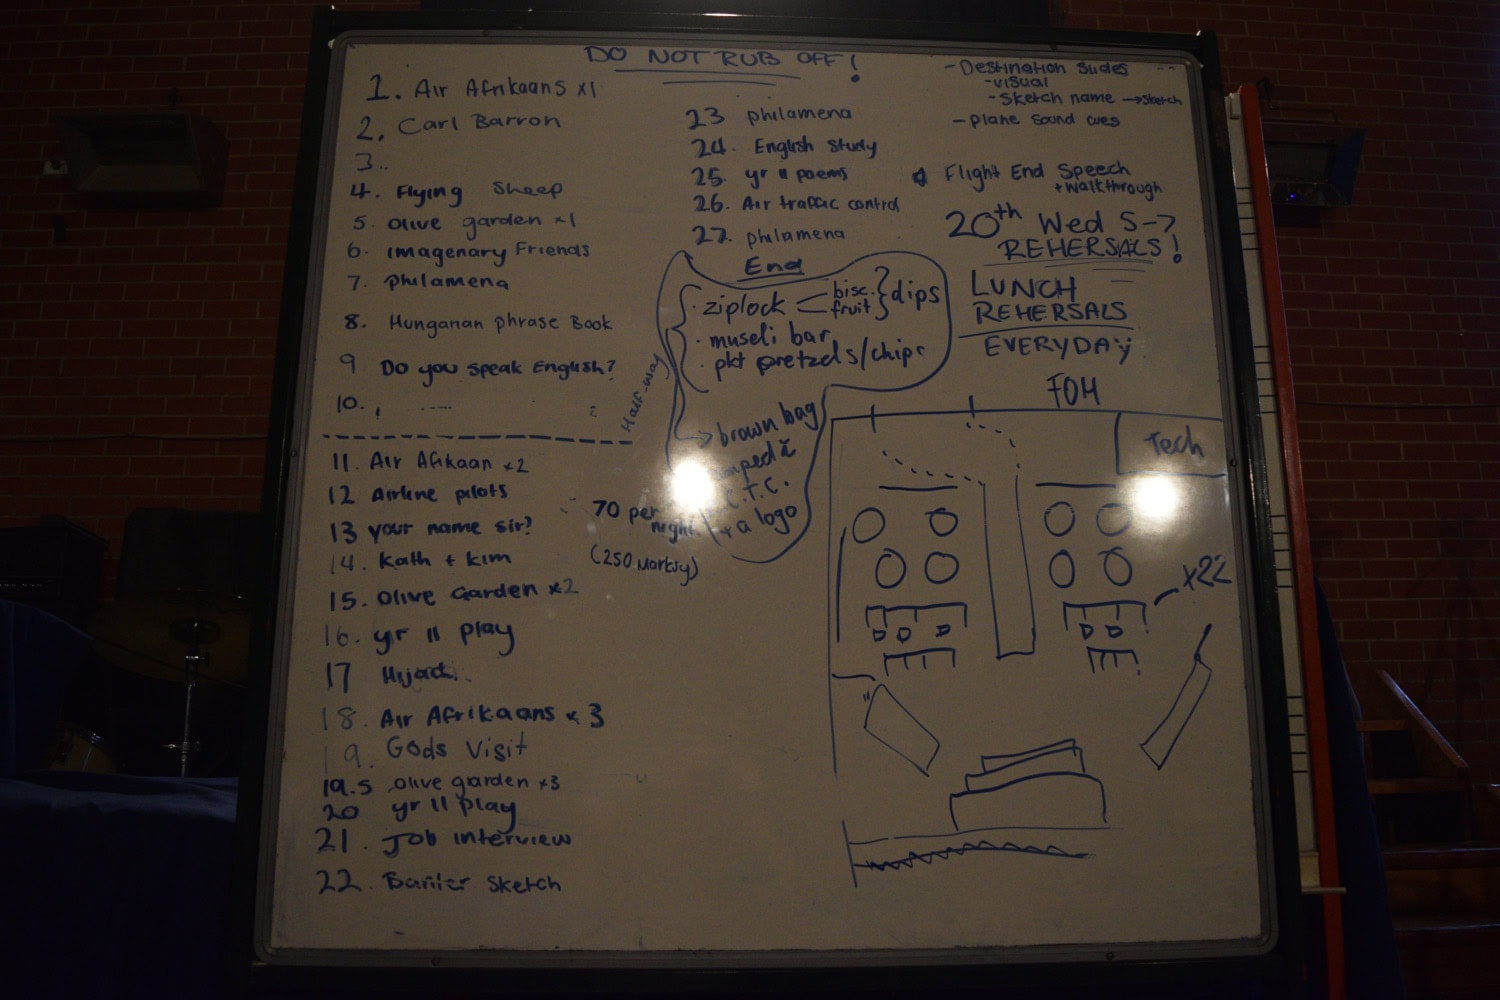 DO NOT RUB OFF!
1. Air Afrikaans x1
2. Carl Barron
3..
4. Flying Sheep
5. olive garden x1
6. imagenary Friends
7. philamena
8. Hungarian phrase Book
9. Do you speak English?
10.
11. Air Afikaan x2
12 Airline pilots
13 your name sir?
14. Kath + kim
15. Olive Garden x2
16. yr 11 play
17 Hijack
18. Air Afrikaans x 3
19. Gods Visit
19.5 olive garden x3
20 yr 11 play
21. Job interview
22. Sketch
23 philamena
24. English Study
25. yr 11 poems
26. Air traffic control
27. philamena
End
· ziplock bisc. fruit } dips
· museli bar
· pkt pretzels/chips
Half-way
→ brown bag
C.T.C.
+ a logo
70 per night
(250 Marksy)
- Destination slides
- visual
- Sketch name → sketch
- plane sound cues
Flight End Speech
+ walkthrough
20th Wed 5-7
REHERSALS!
LUNCH
REHERSALS
EVERYDAY
FOH
Tech
x22